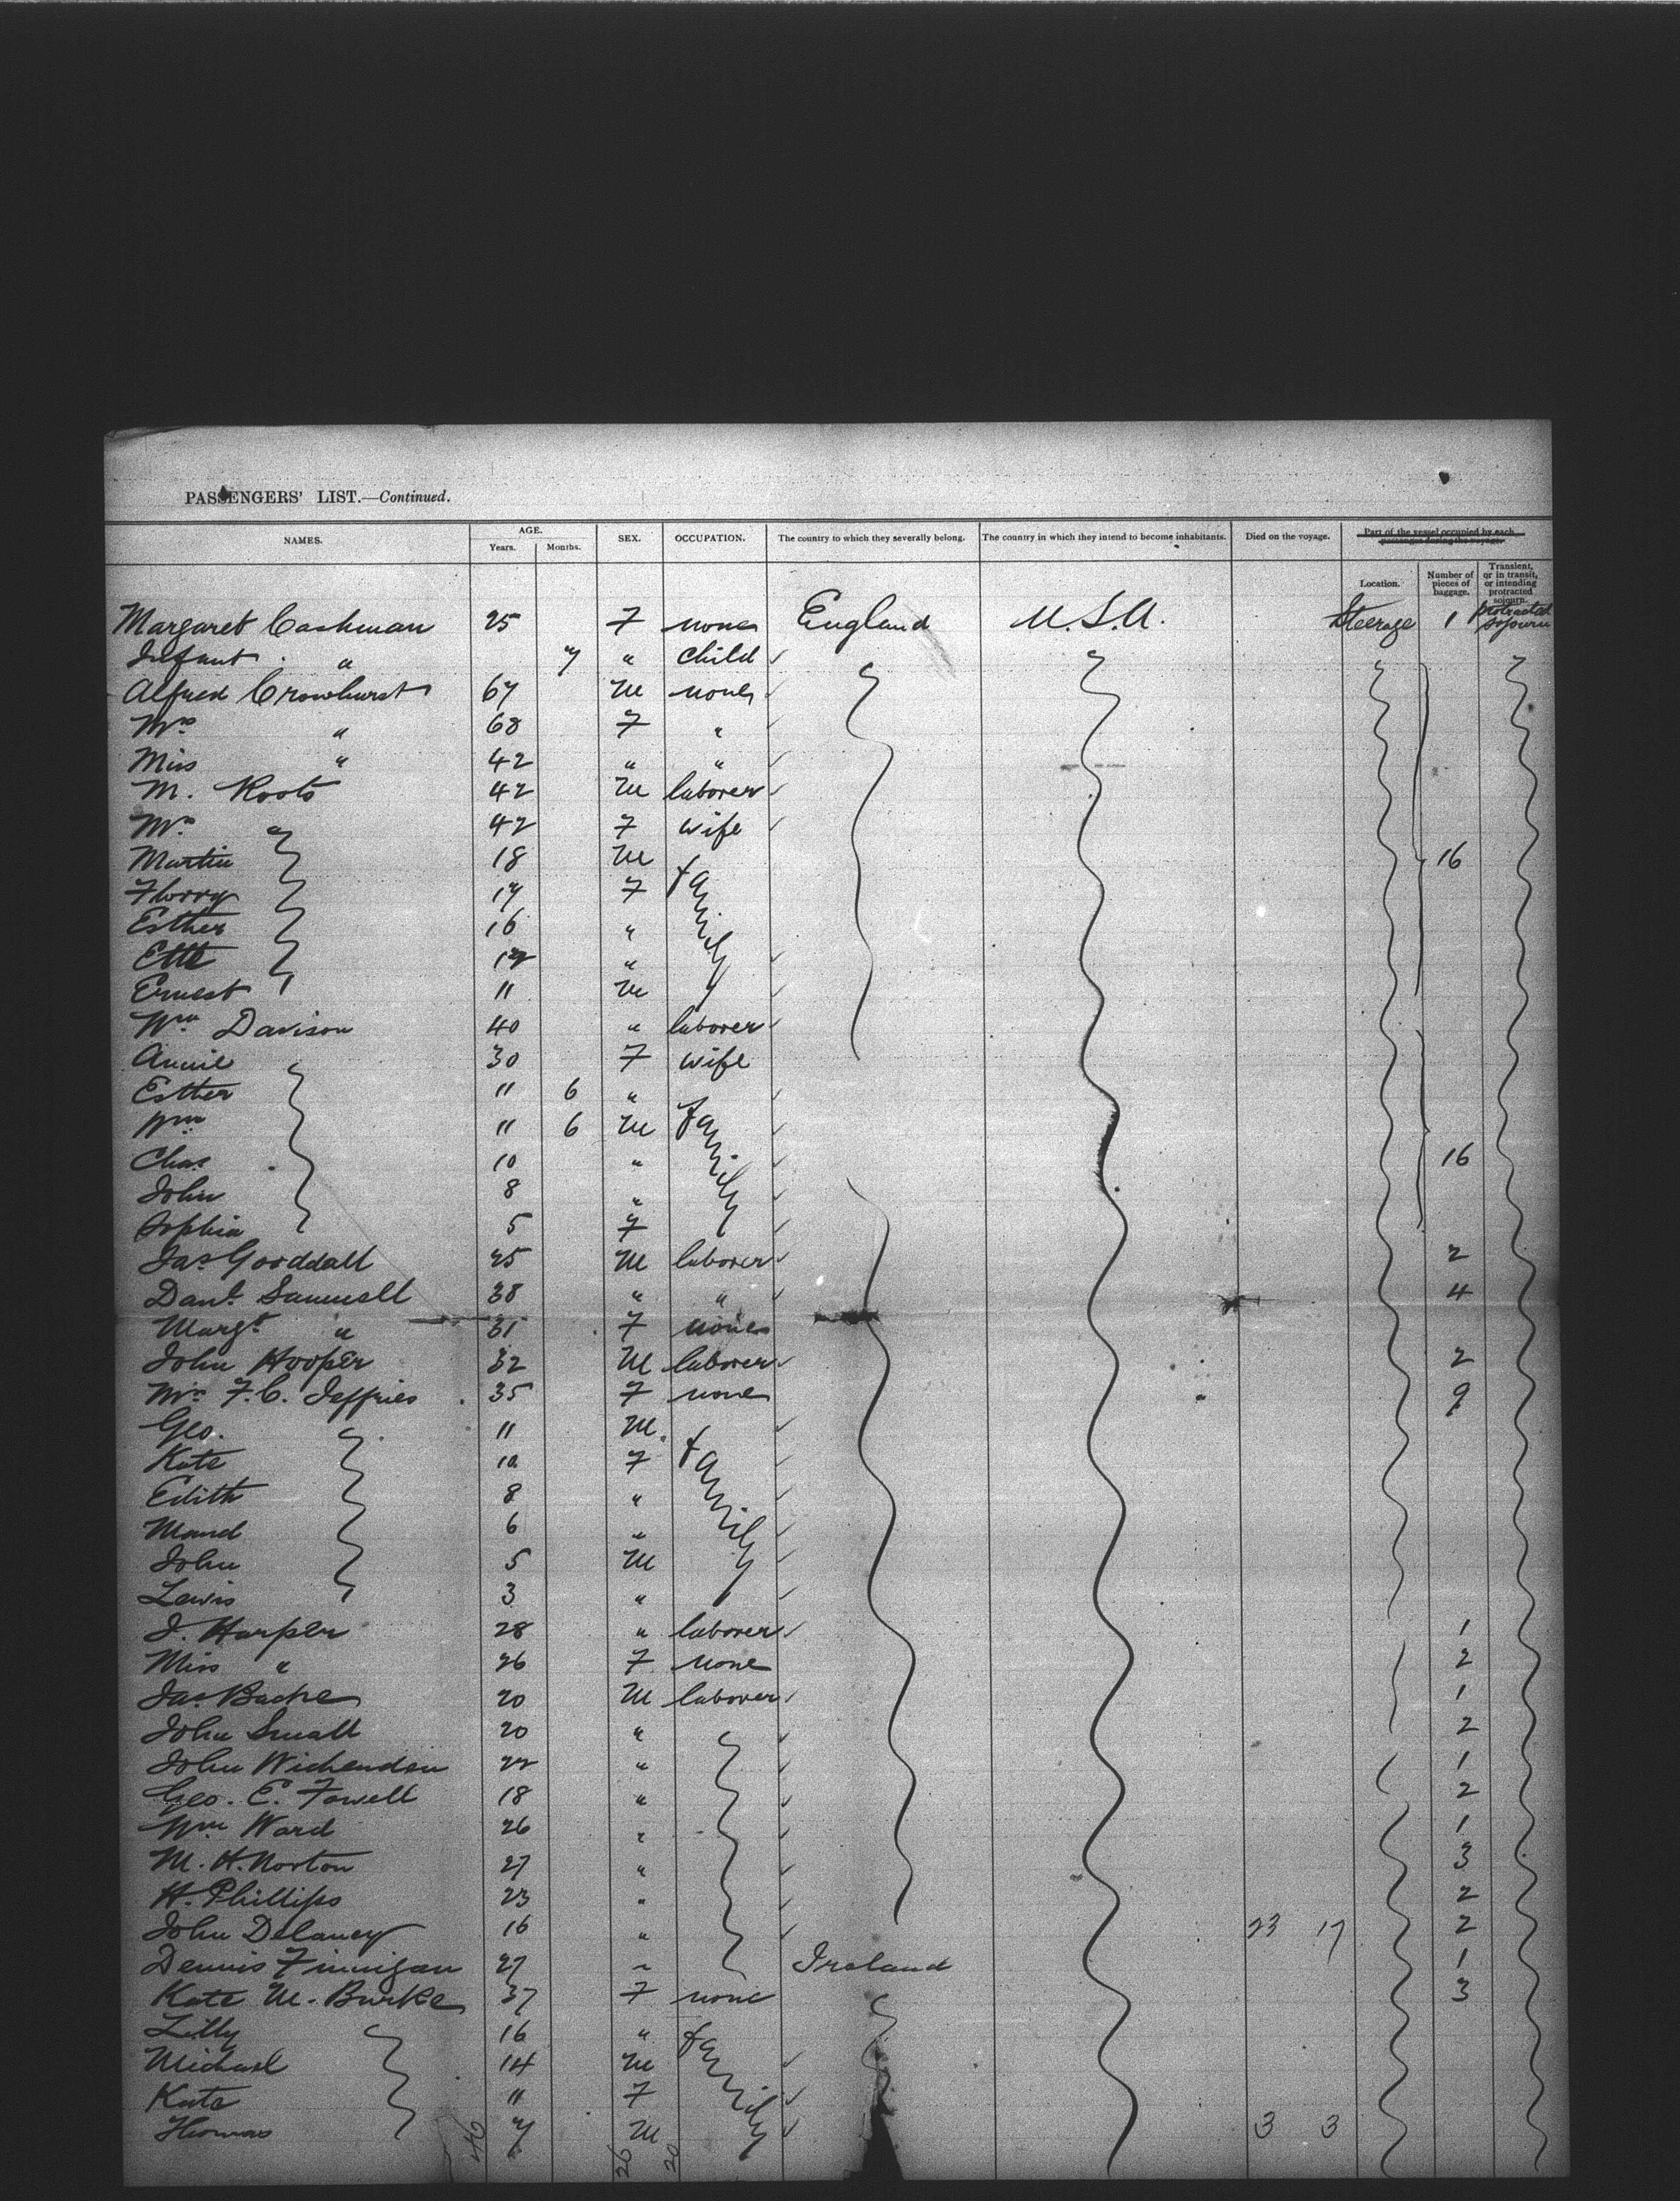 PASSENGERS' LIST.—Continued.
NAMES. AGE. Years. Months. SEX. OCCUPATION. The country to which they severally belong. The country in which they intend to become inhabitants. Died on the voyage. Part of the vessel occupied by each passenger during the voyage. Location. Number of pieces of baggage. Transient, or in transit, or intending protracted sojourn.
Margaret Cashman 25 F none England U.S.A. Steerage 1 protracted sojourn
Infant " 7 " child
Alfred Crowhurst 67 M none
Mrs " 68 F "
Miss " 42 " "
M. Roots 42 M laborer
Mrs 42 F wife
Martin 18 M family 16
Florry 17 F
Esther 16 "
Ette 12 "
Ernest 11 M
Wm Davison 40 " laborer
Annie 30 F wife
Esther 11 6 "
Wm 11 6 M family
Chas 10 " 16
John 8 "
Sophia 5 F
Jas Gooddall 25 M laborer 2
Danl. Sammell 38 " " 4
Margt " 31 F none
John Hooper 32 M laborer 2
Mrs F.C. Jeffries 35 F none 9
Geo. 11 M family
Kate 10 F
Edith 8 "
Maud 6 "
John 5 M
Lewis 3 "
J. Harper 28 " laborer 1
Miss " 26 F none 2
Jas Bache 20 M laborer 1
John Small 20 " 2
John Wichendin 22 " 1
Geo. E. Fowell 18 " 2
Wm Ward 26 " 1
M. H. Norton 27 " 3
H. Phillips 23 " 2
John Delaney 16 " 23 17 2
Dennis Finnigan 27 " Ireland 1
Kate M. Burke 37 F none 3
Lilly 16 " family
Michael 14 M
Kate 11 F
Thomas 7 M 3 3
46 26 20